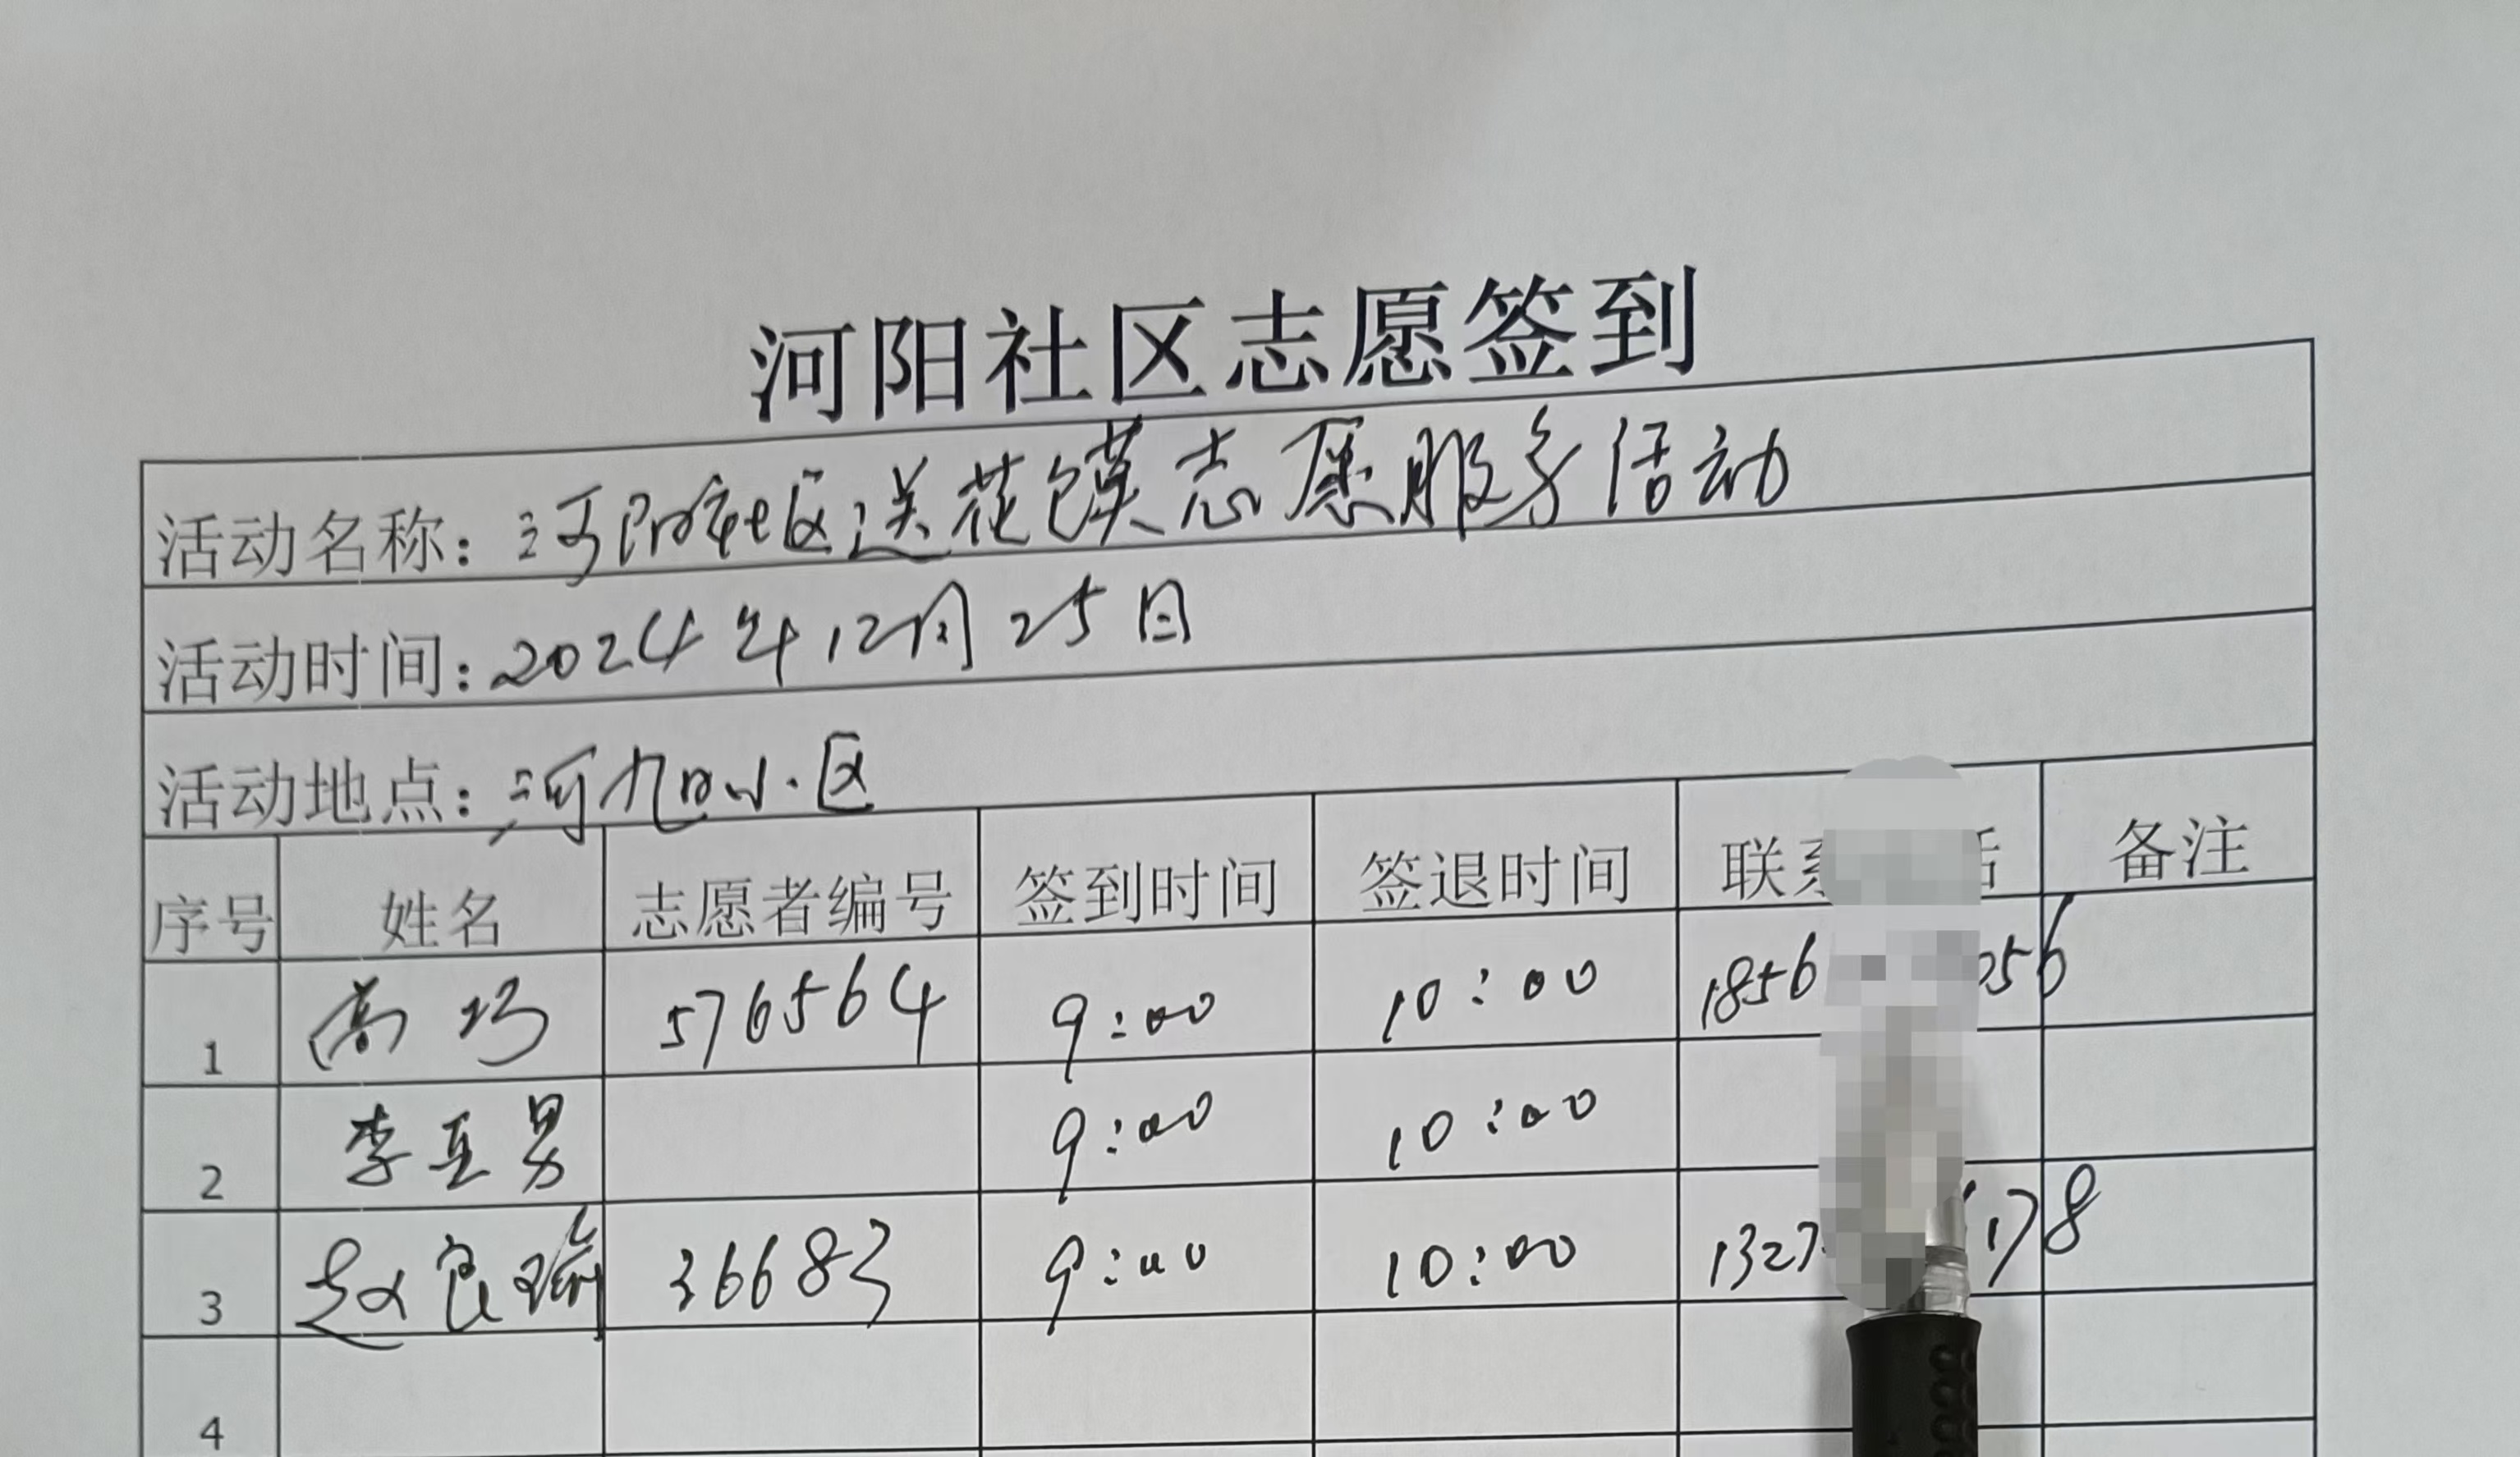 河阳社区志愿签到
活动名称：河阳社区送花馍志愿服务活动
活动时间：2024年12月25日
活动地点：河九田小区
序号 姓名 志愿者编号 签到时间 签退时间 联系 话 备注
1 高巧 576564 9:00 10:00 1856 056
2 李亚男 9:00 10:00
3 赵良瑜 36683 9:00 10:00 1327 178
4